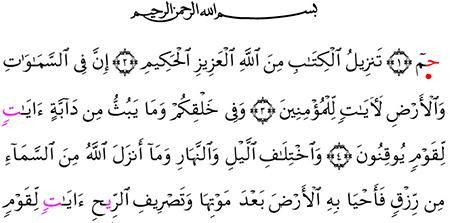 بِسْمِ ٱللَّهِ ٱلرَّحْمَٰنِ ٱلرَّحِيمِ
حمٓ ﴿١﴾ تَنزِيلُ ٱلْكِتَٰبِ مِنَ ٱللَّهِ ٱلْعَزِيزِ ٱلْحَكِيمِ ﴿٢﴾ إِنَّ فِى ٱلسَّمَٰوَٰتِ
وَٱلْأَرْضِ لَأٓيَٰتٍ لِّلْمُؤْمِنِينَ ﴿٣﴾ وَفِى خَلْقِكُمْ وَمَا يَبُثُّ مِن دَآبَّةٍ ءَايَٰتٍ
لِّقَوْمٍ يُوقِنُونَ ﴿٤﴾ وَٱخْتِلَٰفِ ٱلَّيْلِ وَٱلنَّهَارِ وَمَآ أَنزَلَ ٱللَّهُ مِنَ ٱلسَّمَآءِ
مِن رِّزْقٍ فَأَحْيَا بِهِ ٱلْأَرْضَ بَعْدَ مَوْتِهَا وَتَصْرِيفِ ٱلرِّيحِ ءَايَٰتٍ لِّقَوْمٍ